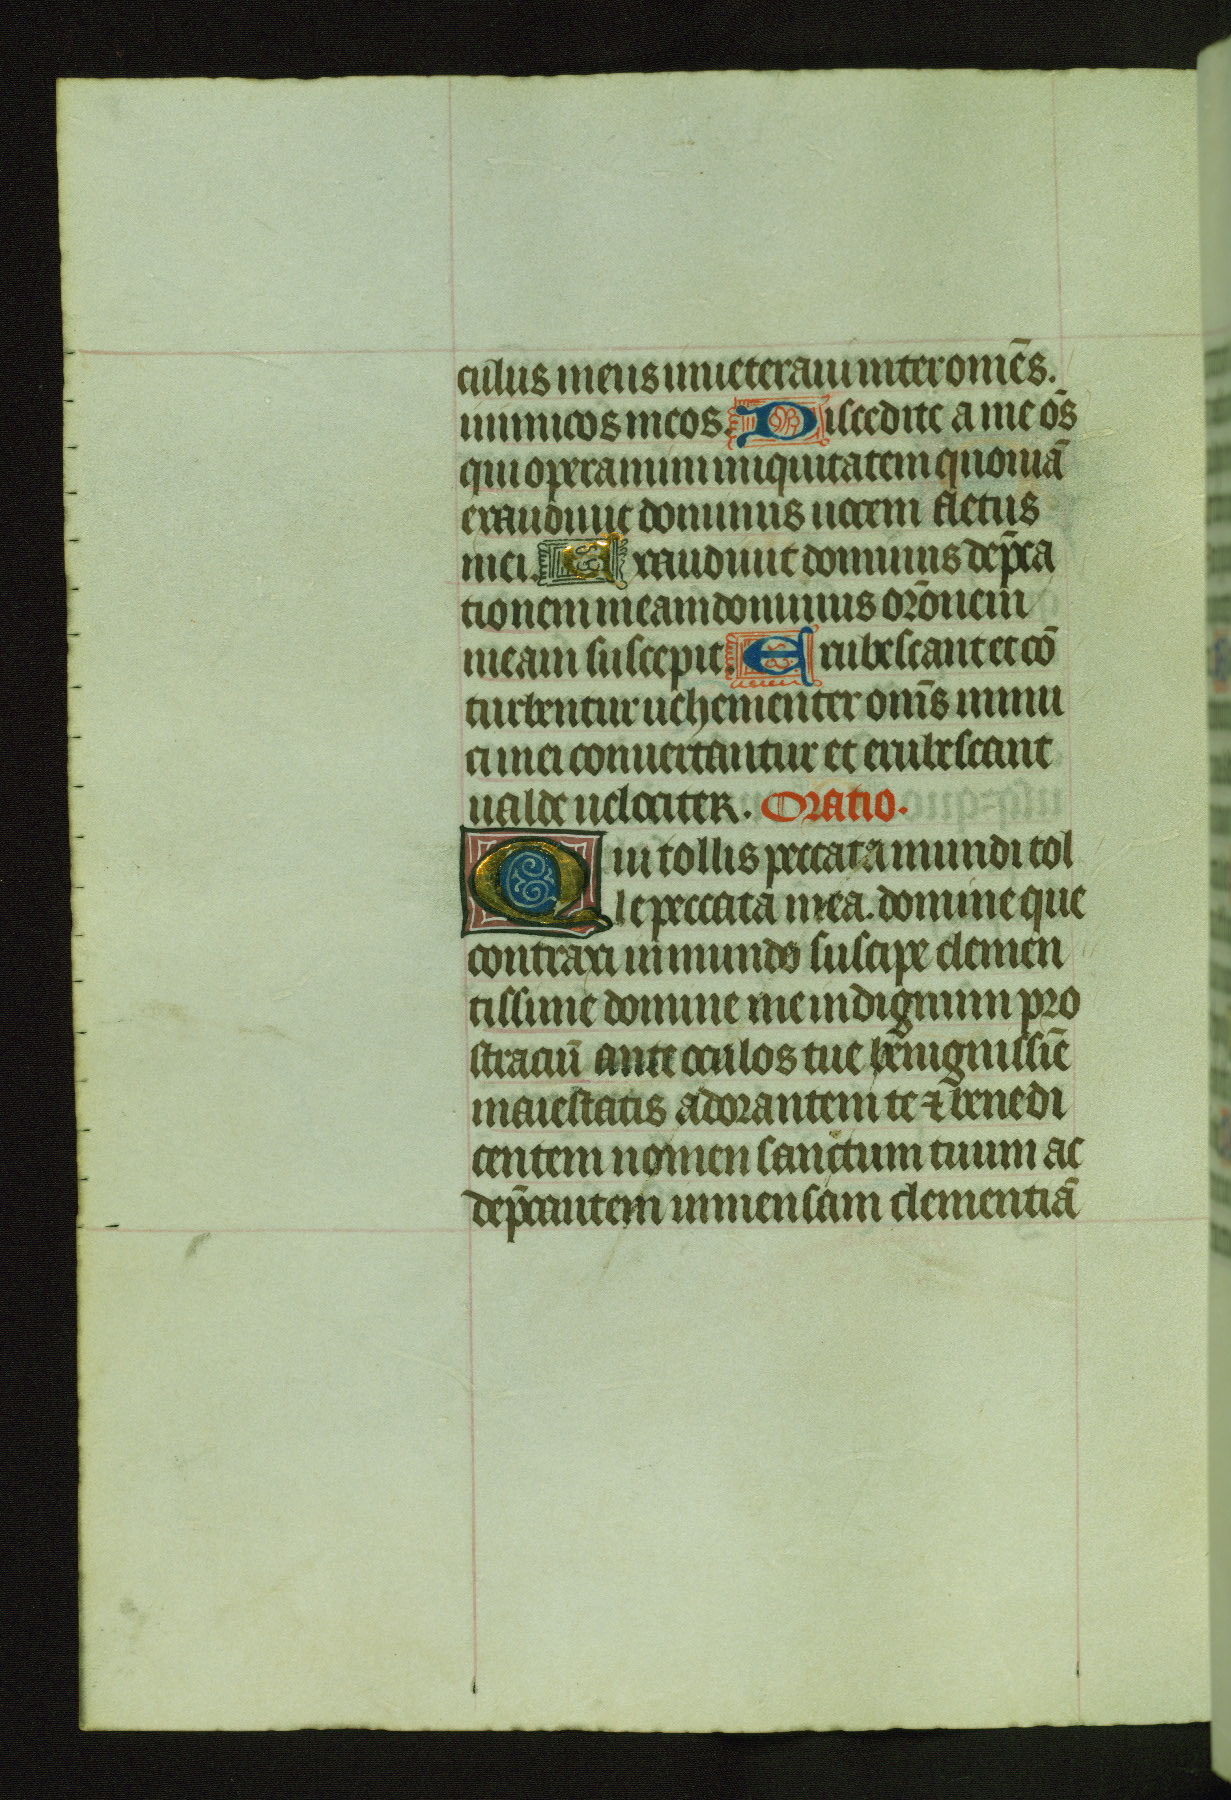 culus meus inueteraui inter om̄es.
inimicos meos. Discedite a me om̄s
qui operamini iniquitatem quoniā
exaudiuit dominus uocem fletus
mei. Exaudiuit dominus dep̄ca
tionem meam dominus or̄onem
meam suscepit. Erubescant et cō
turbentur uehementer om̄s inimi
ci mei conuertantur et erubescant
ualde uelociter. Oratio.
Qui tollis peccata mundi tol
le peccata mea. domine que
contraxi in mundo suscipe clemen
tissime domine me indignum pro
stratū ante oculos tue benignissīe
maiestatis adorantem te ⁊ benedi
centem nomen sanctum tuum ac
dep̄cantem inmensam clementiā